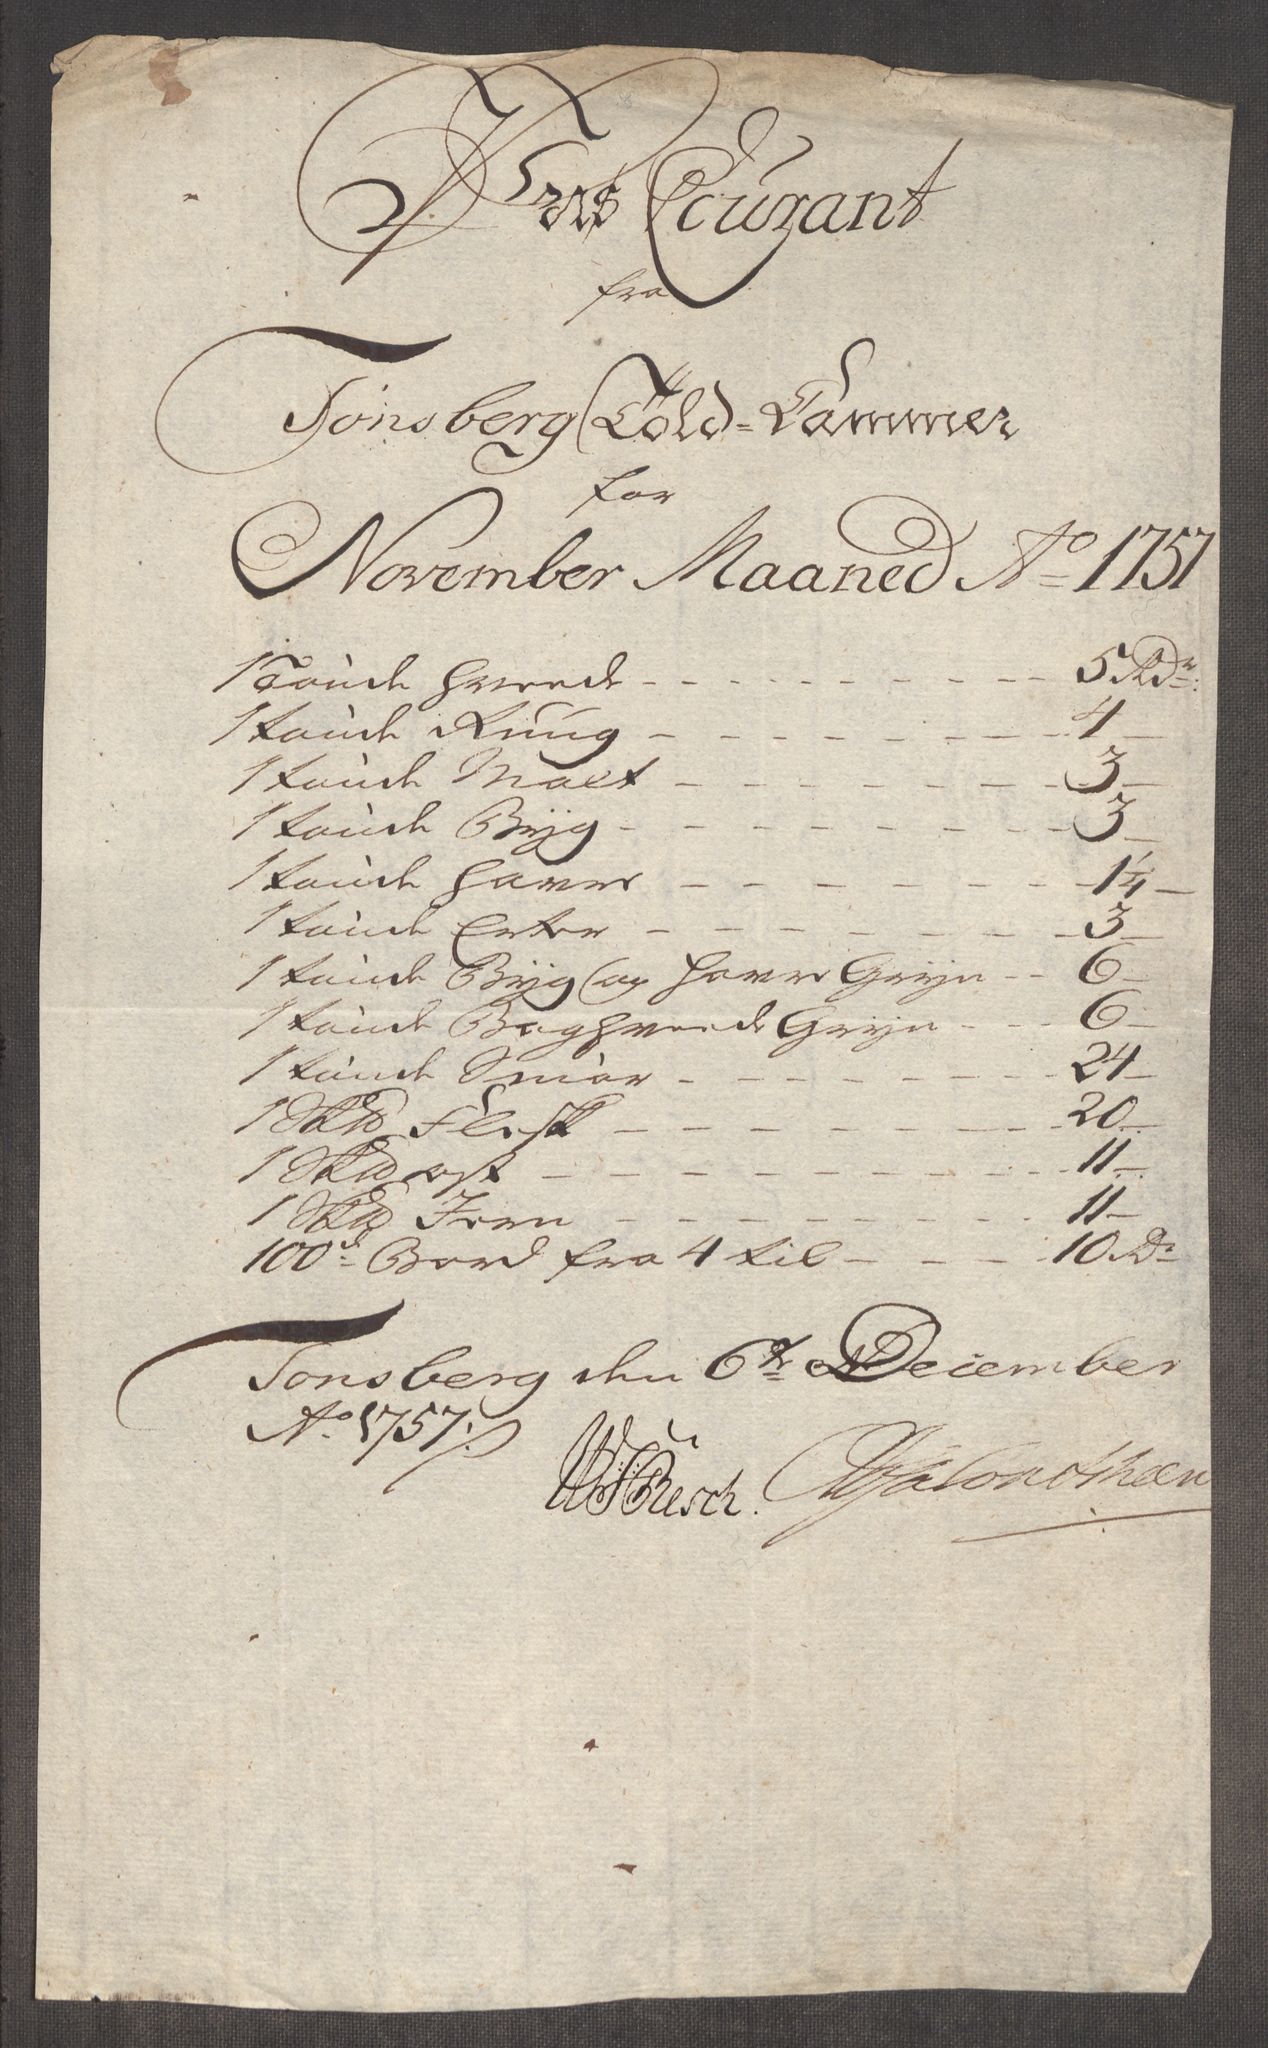 Priis Courant
fra
Tönsberg Told-Cammer
for
November Maaned Ao 1757
1 Tönde Hvede - - - - - 5 Rdr:
1 tönde Rüug - - - - - 4 -
1 tönde Malt - - - - - 3 -
1 tönde Byg - - - - - 3 -
1 tönde Havre - - - - - 1¼ -
1 tönde Erter - - - - - 3 -
1 tönde Byg og Havre Gryn - - 6 -
1 tönde Boghvede Gryn - - - 6 -
1 tönde Smör - - - - - 24 -
1 Sk℔ Flesk - - - - - 20 -
1 Sk℔ ost - - - - - 11 -
1 Sk℔ Jern - - - - - 11 -
100d: Bord fra 4 til - - - 10 Dr
Tonsberg den 6te December
Ao. 1757.
Resch.